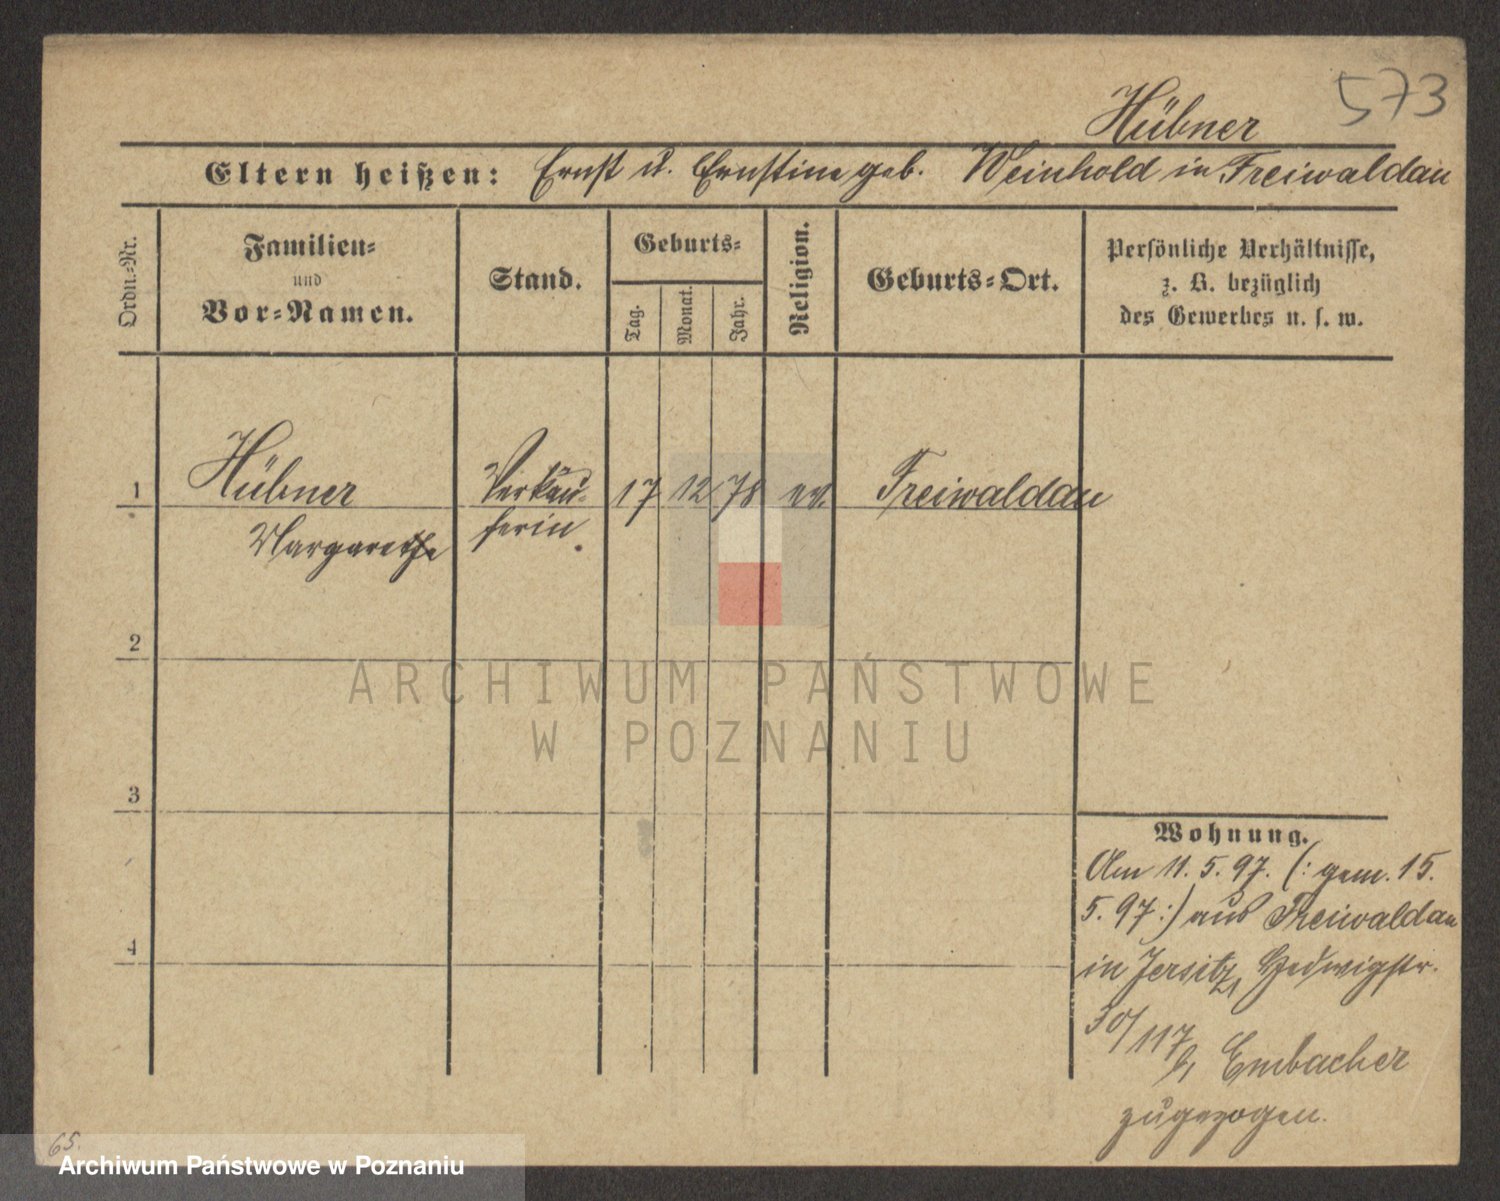 573
Hübner
Eltern heißen: Ernst u. Ernstine geb. Weinhold in Freiwaldau
Ordn.-Nr.
Familien-
und
Vor-Namen.
Stand.
Geburts-
Tag.
Monat.
Jahr.
Religion.
Geburts-Ort.
Persönliche Verhältnisse,
z. B. bezüglich
des Gewerbes u. s. w.
1 Hübner Verkäu- 17 12 78 ev. Freiwaldau
Margarethe ferin.
2
ARCHIWUM PAŃSTWOWE
W POZNANIU
3
Wohnung.
Am 11. 5. 97. (: gem. 15.
5. 97 :) aus Freiwaldau
4
in Jersitz, Hedwigstr.
30/117 b, Embacher
zugezogen.
65.
Archiwum Państwowe w Poznaniu